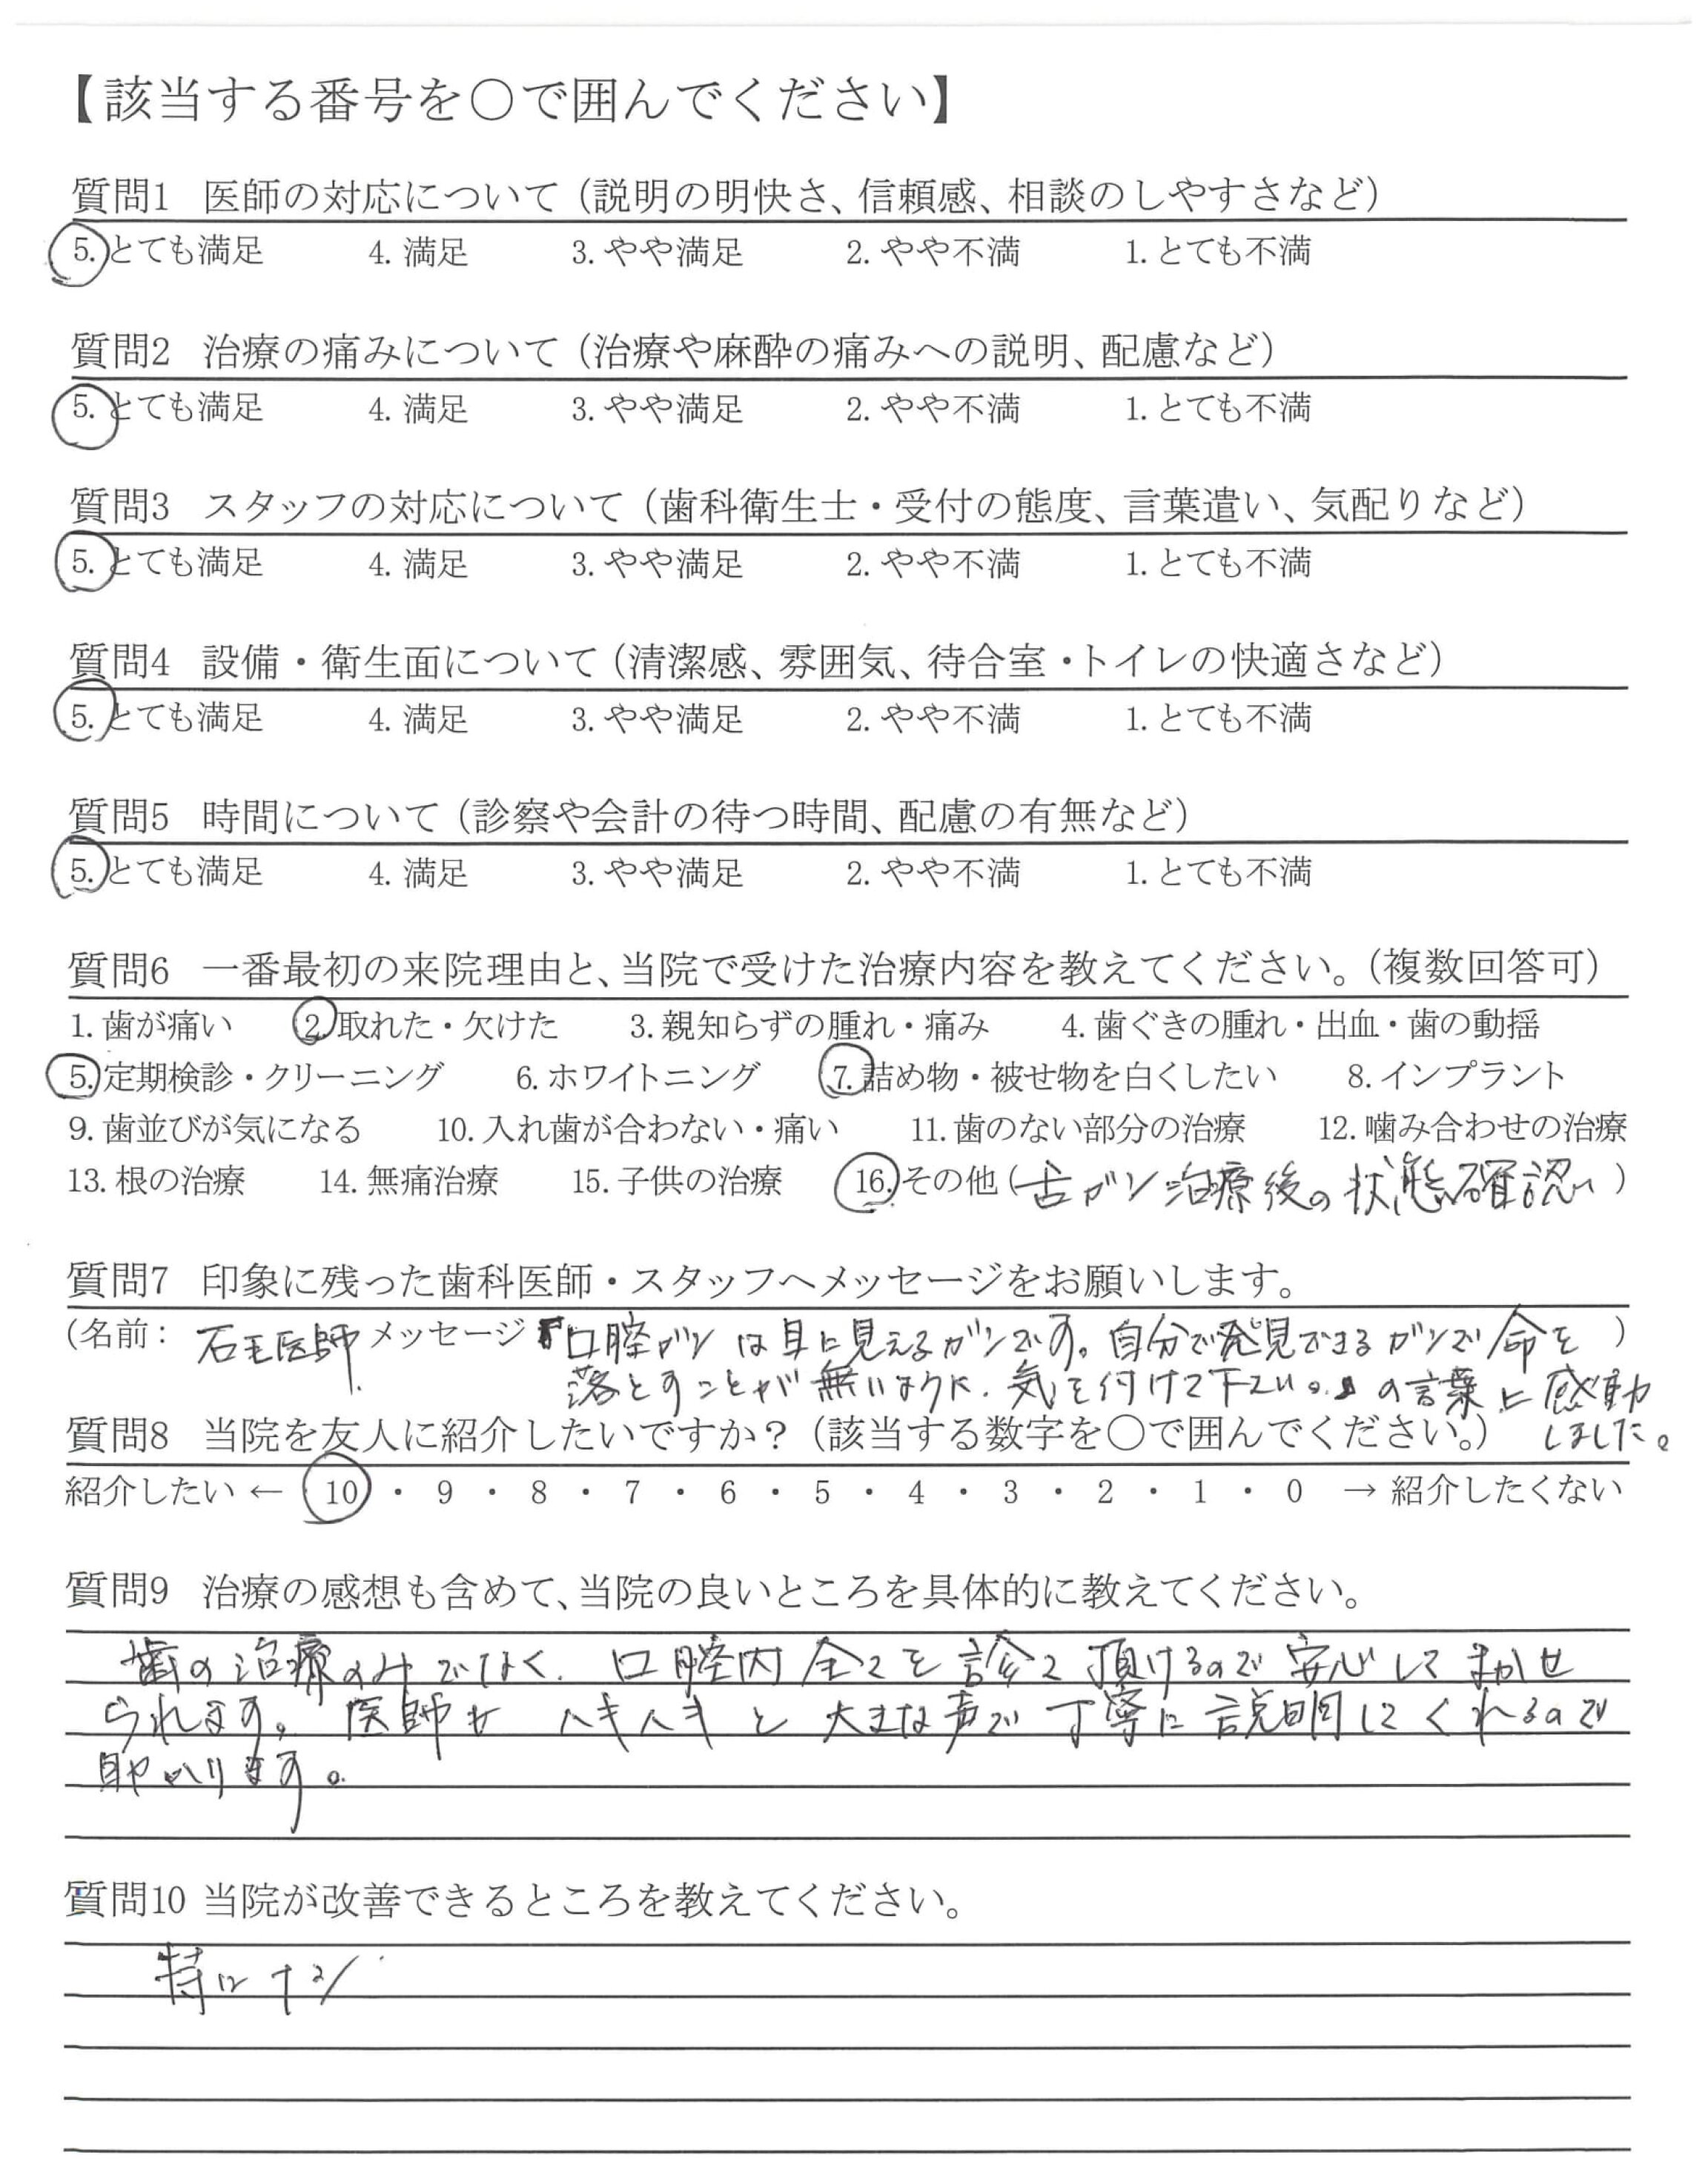 【該当する番号を〇で囲んでください】
質問1 医師の対応について（説明の明快さ、信頼感、相談のしやすさなど）
5. とても満足 4. 満足 3. やや満足 2. やや不満 1. とても不満
質問2 治療の痛みについて（治療や麻酔の痛みへの説明、配慮など）
5. とても満足 4. 満足 3. やや満足 2. やや不満 1. とても不満
質問3 スタッフの対応について（歯科衛生士・受付の態度、言葉遣い、気配りなど）
5. とても満足 4. 満足 3. やや満足 2. やや不満 1. とても不満
質問4 設備・衛生面について（清潔感、雰囲気、待合室・トイレの快適さなど）
5. とても満足 4. 満足 3. やや満足 2. やや不満 1. とても不満
質問5 時間について（診察や会計の待つ時間、配慮の有無など）
5. とても満足 4. 満足 3. やや満足 2. やや不満 1. とても不満
質問6 一番最初の来院理由と、当院で受けた治療内容を教えてください。（複数回答可）
1. 歯が痛い 2. 取れた・欠けた 3. 親知らずの腫れ・痛み 4. 歯ぐきの腫れ・出血・歯の動揺
5. 定期検診・クリーニング 6. ホワイトニング 7. 詰め物・被せ物を白くしたい 8. インプラント
9. 歯並びが気になる 10. 入れ歯が合わない・痛い 11. 歯のない部分の治療 12. 噛み合わせの治療
13. 根の治療 14. 無痛治療 15. 子供の治療 16. その他（舌ガン治療後の状態確認）
質問7 印象に残った歯科医師・スタッフへメッセージをお願いします。
（名前： 石毛医師 メッセージ 「口腔ガンは目に見えるガンです。自分で発見できるガンで命を ）
落とすことが無いように、気を付けて下さい。」の言葉に感動
しました。
質問8 当院を友人に紹介したいですか？（該当する数字を〇で囲んでください。）
紹介したい ← 10 ・ 9 ・ 8 ・ 7 ・ 6 ・ 5 ・ 4 ・ 3 ・ 2 ・ 1 ・ 0 → 紹介したくない
質問9 治療の感想も含めて、当院の良いところを具体的に教えてください。
歯の治療のみでなく、口腔内全てを診て頂けるので安心してまかせ
られます。医師も ハキハキと大きな声で丁寧に説明してくれるので
助かります。
質問10 当院が改善できるところを教えてください。
特にナシ